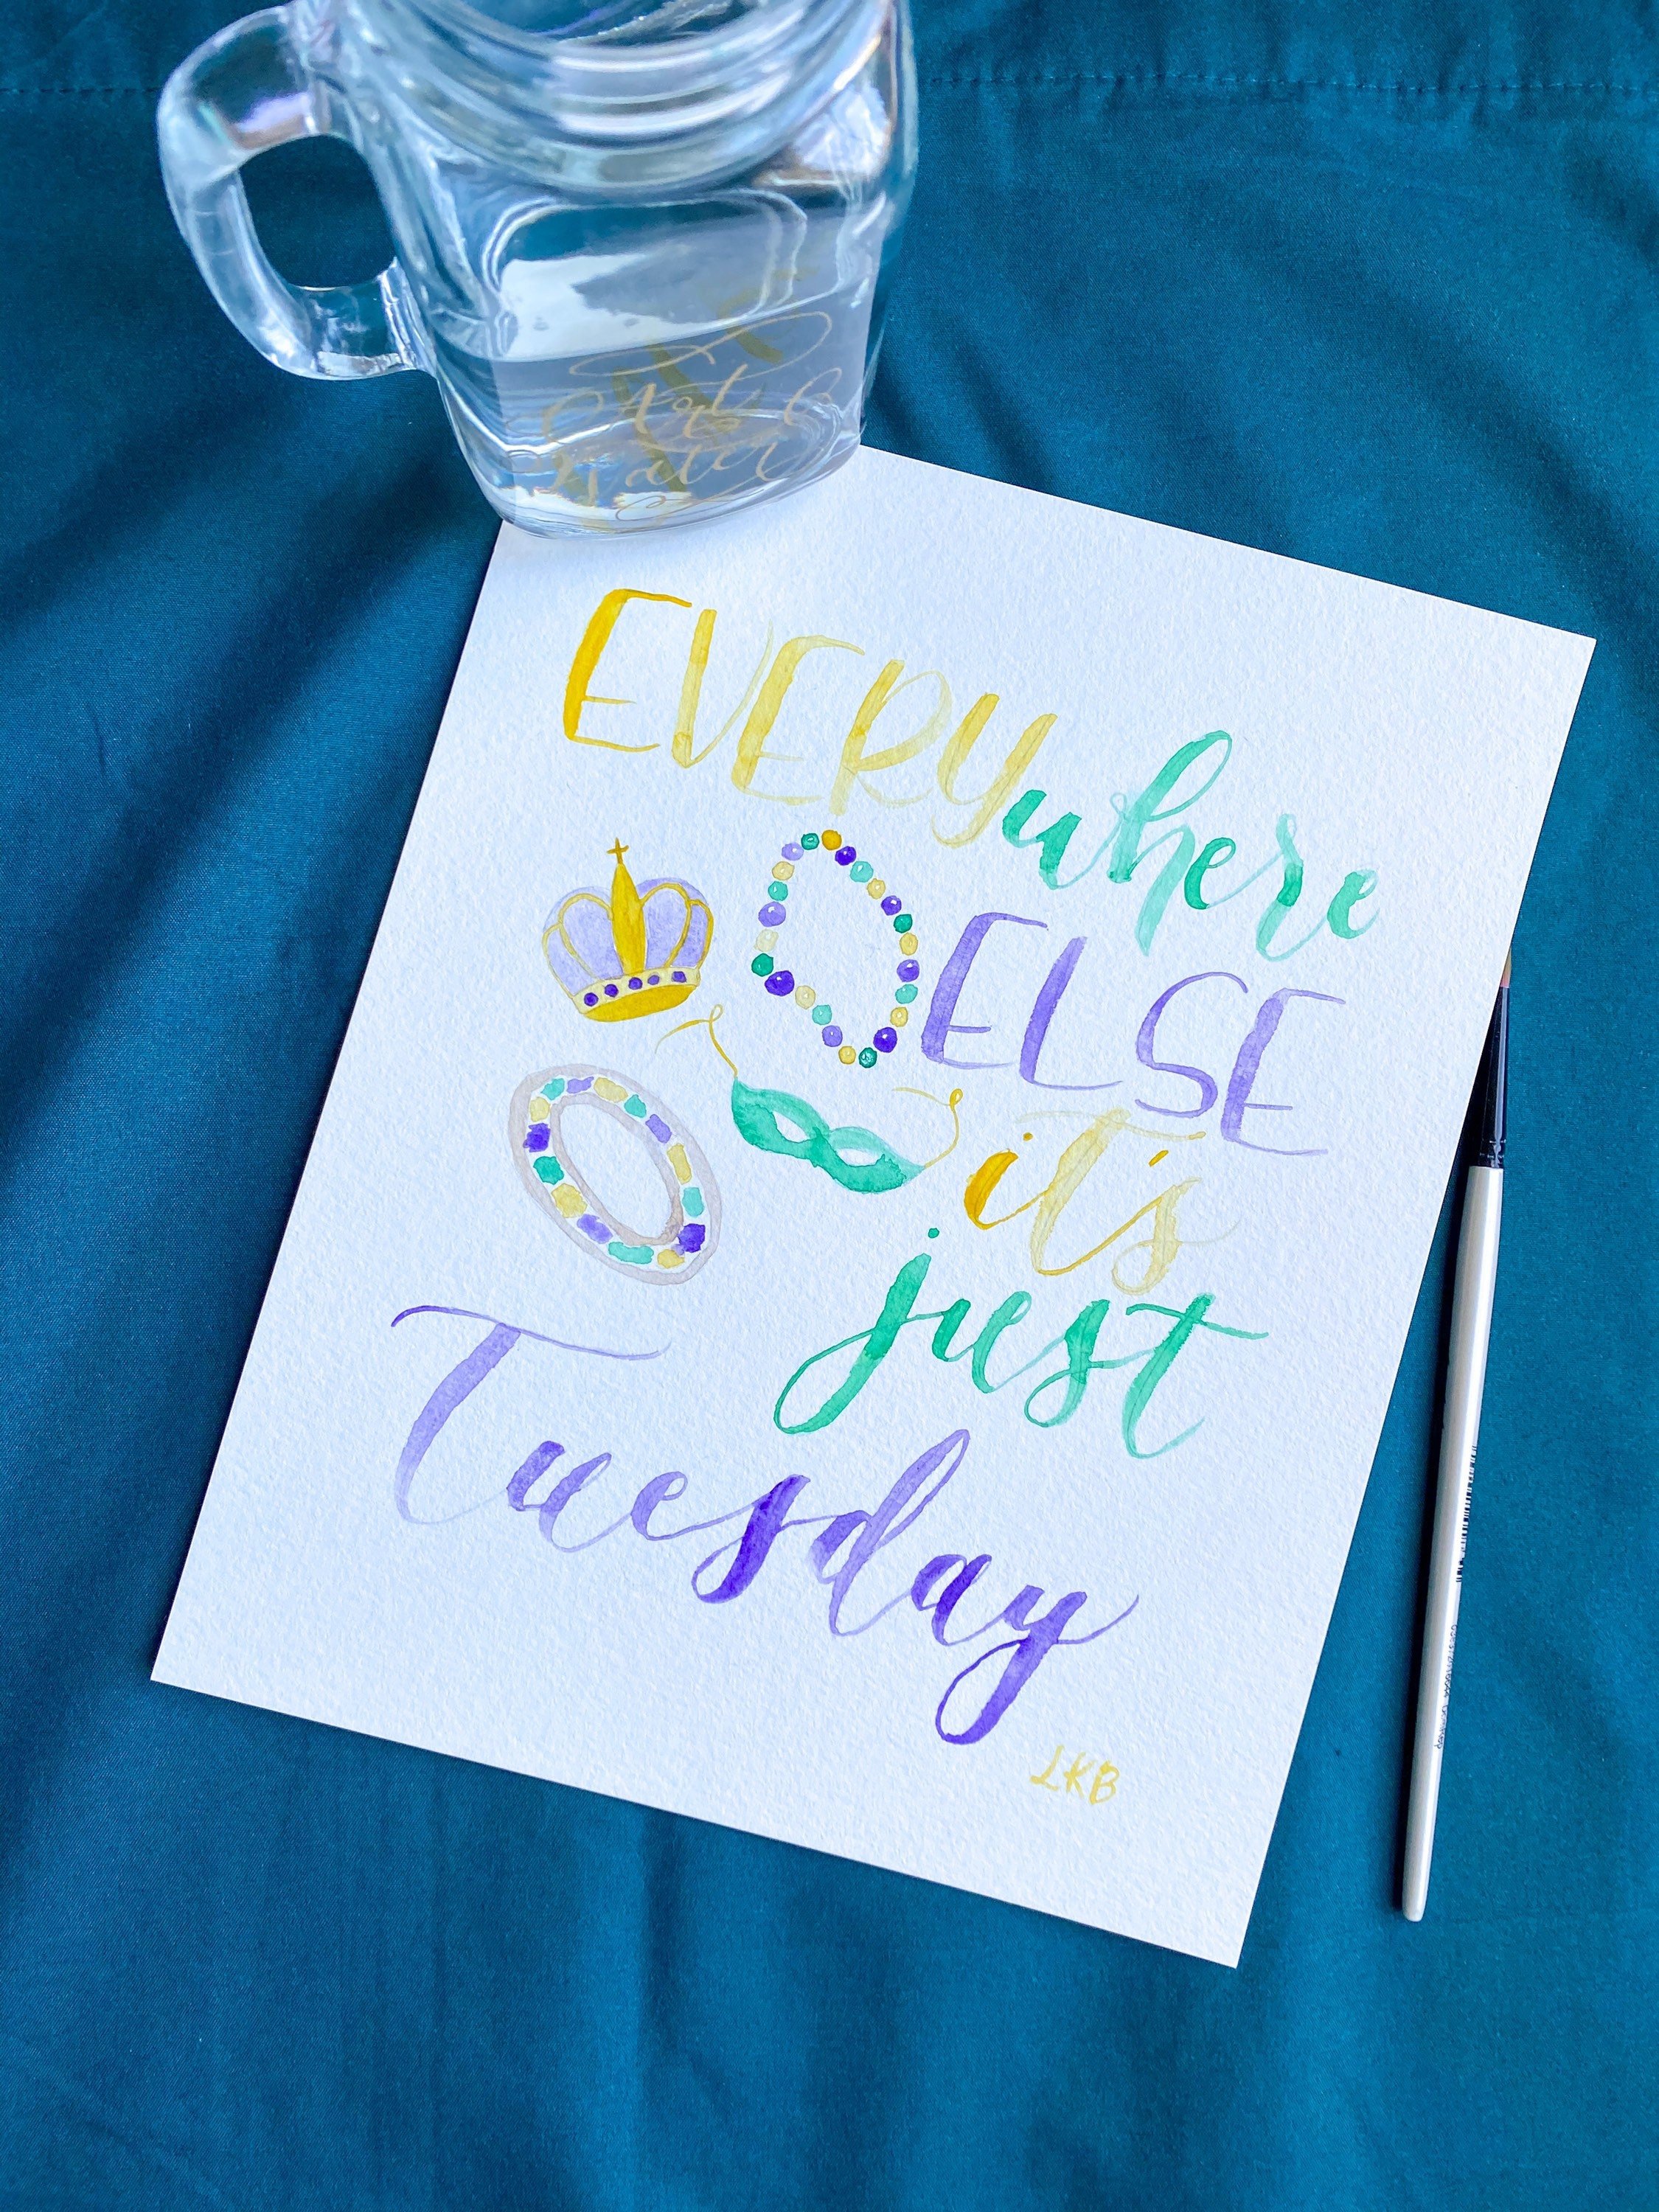 Art
Water
EVERYwhere
ELSE
it's
just
Tuesday
LKB